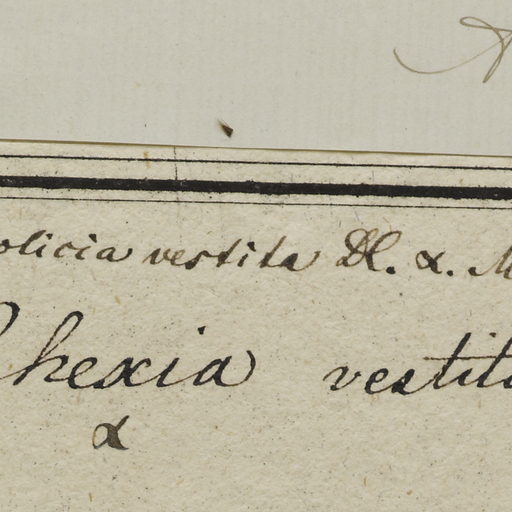 olicia vestita Dl. α. M
Rhexia vestita
α